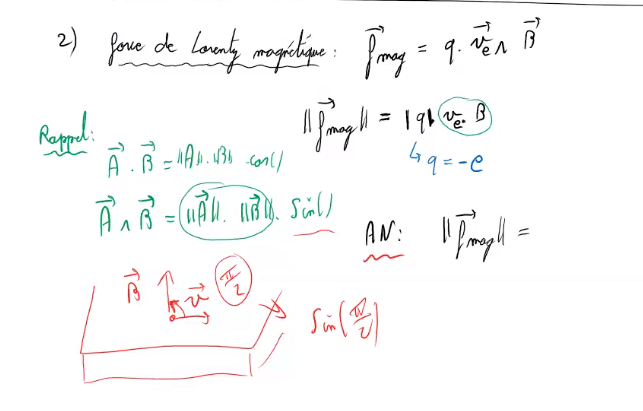 2) force de Lorentz magnétique : f⃗mag = q. v⃗e ∧ B⃗
||f⃗mag|| = |q| ve. B
↳ q = -e
Rappel:
A⃗ . B⃗ = ||A||. ||B|| cos()
A⃗ ∧ B⃗ = ||A⃗||. ||B⃗||. Sin()
AN: ||f⃗mag|| =
B⃗ v⃗ π/2
Sin(π/2)